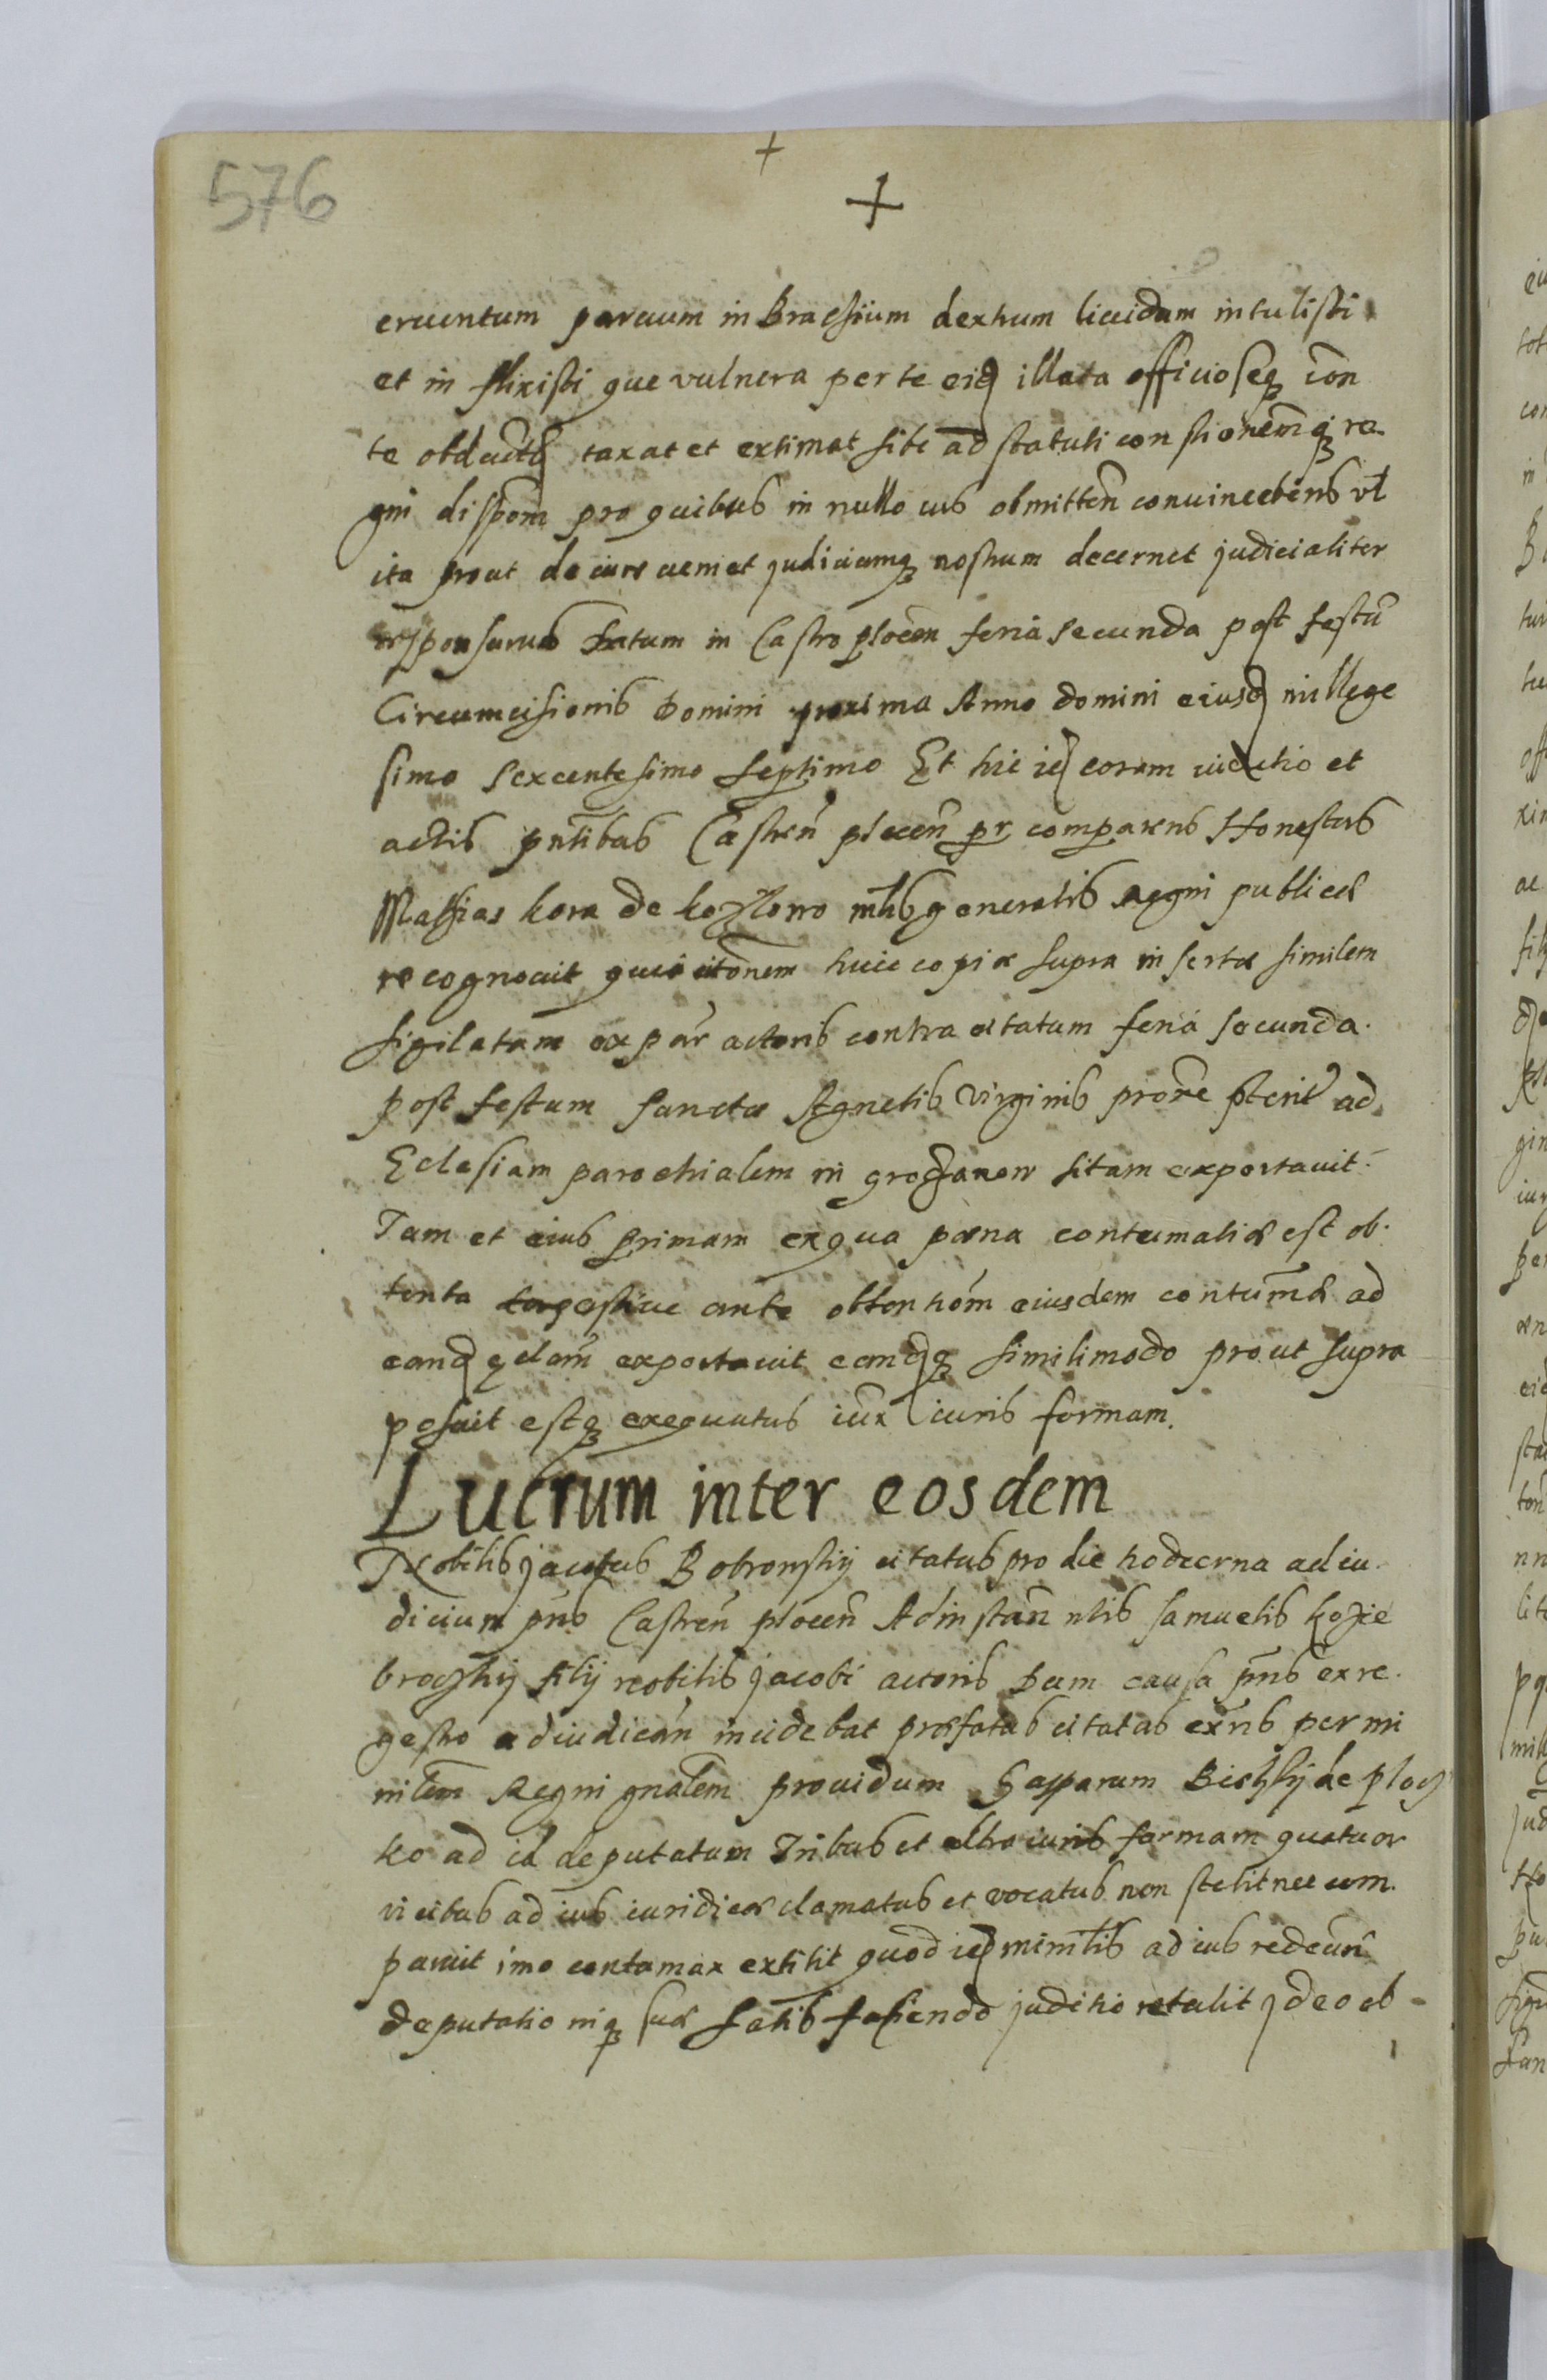 576
cruentum paruum in Brachium dextrum liuidam intulisti
et in flixisti que vulnera per te eid illata officioseq con
te obducta taxat et extimat sibi ad statuti constionemq re
gni dispom pro quibus in nullo ius obmitten conuincebens vl
ita prout de iure ueniet judiciumq nostrum decernet judicialiter
responsurus Datum in Castro plocen feria secunda post festu
Circumcisionis Domini proxima Anno domini eiusd millege
simo sexcentesimo septimo Et hic id coram iuditio et
actis pntibus Castren plocen pr comparens Honestus
Mathias kora de kozlowo mlis generalis regni publice
recognouit quia citonem huic copiæ supra insertæ similem
sigilatam ex par actoris contra citatum feria secunda
post festum sanctæ Agnetis virginis prone pterit ad
Eclesiam parochialem in sitam exportauit
Tam et eius primam ex qua pæna contumatiæ est ob
tenta tempestiue ante obtentiom eiusdem contumæ ad
eand eclam exportauit eandq similimodo prout supra
posuit estq exequutus iux iuris formam.
Lucrum inter eosdem
Nobilis jacobus Bobrowskij citatus pro die hodierna ad iu
dicium pns Castren plocen Ad instan nlis samuelis kozie
brodzkij filij nobilis jacobi actoris Dum causa pns ex re
gestro adiudican incidebat præfatus citatus exns per mi
nilem Regni gnalem prouidum Gasparum de plocz
ko ad id deputatum Tribus et ultra iuris formam quatuor
vicibus ad ius iuridice clamatus et vocatus non stetit nec com
paruit imo contumax extitit quod id minilis ad ius redeun
deputationiq suæ satis fatiendo juditio retulit jdeo ob